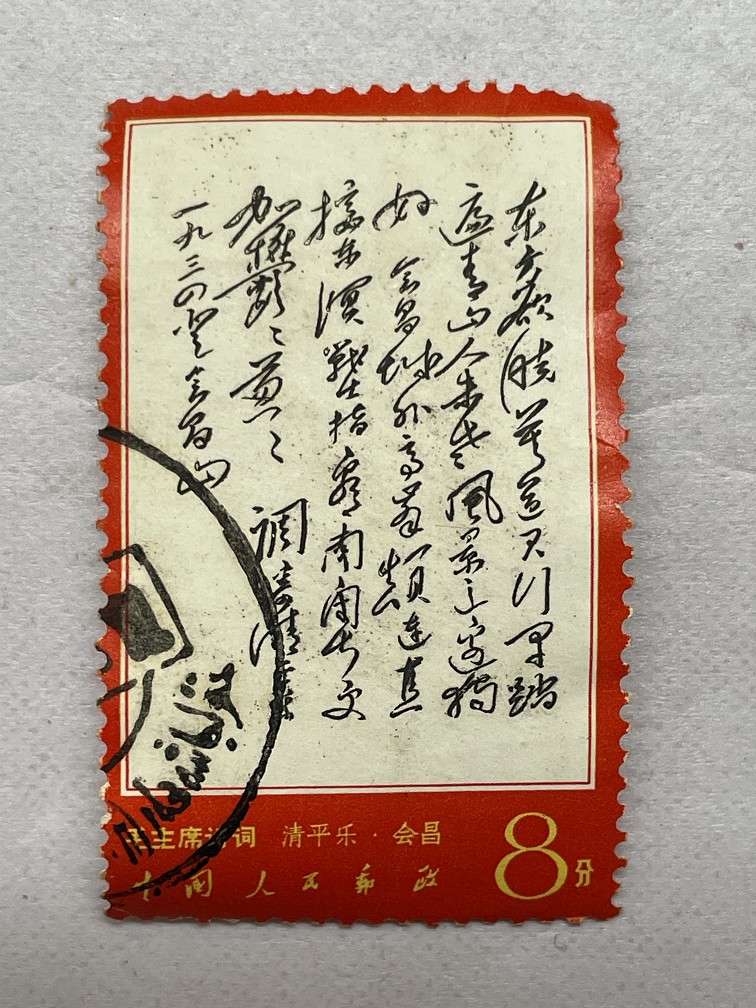 东方欲晓莫道君行早踏
遍青山人未老风景这边独
好 会昌城外高峰颠连直
接东溟战士指看南粤更
加郁郁葱葱 调寄清平乐
一九三四登会昌山
毛主席诗词 清平乐·会昌
中国人民邮政
8分